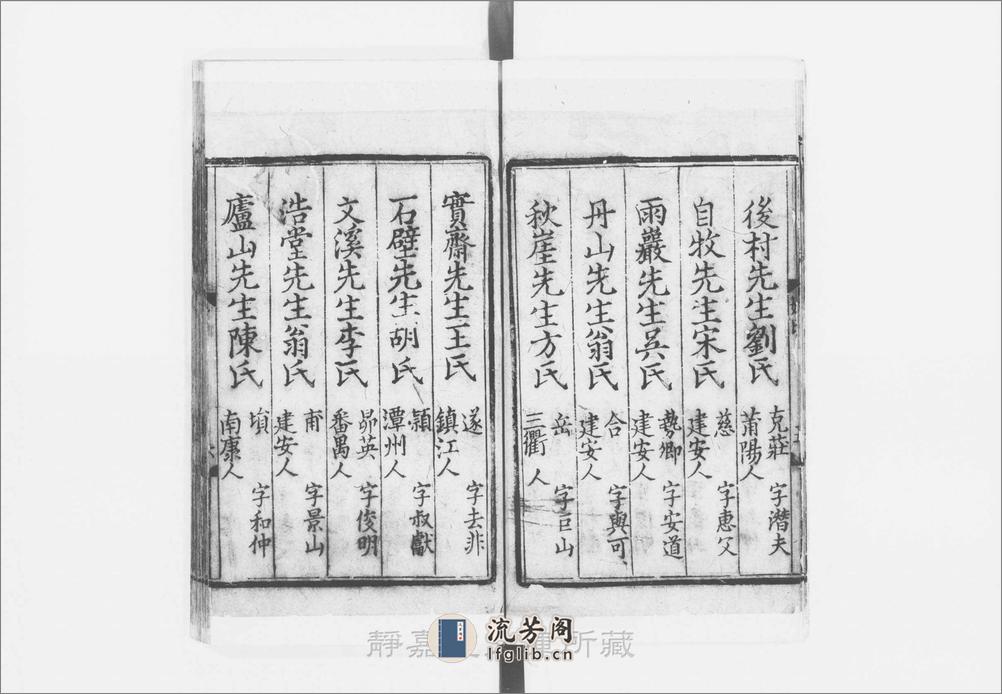 後村先生劉氏 克莊 字潛夫 莆陽人
自牧先生宋氏 慈 字惠父 建安人
雨巖先生吳氏 勢卿 字安道 建安人
丹山先生翁氏 合 字與可 建安人
秋崖先生方氏 岳 字巨山 三衢人
實齋先生王氏 遂 字去非 鎮江人
石壁先生胡氏 頴 字叔獻 潭州人
文溪先生李氏 昴英 字俊明 番禺人
浩堂先生翁氏 甫 字景山 建安人
廬山先生陳氏 塤 字和仲 南康人
靜嘉 所藏
流芳阁
lfglib.cn